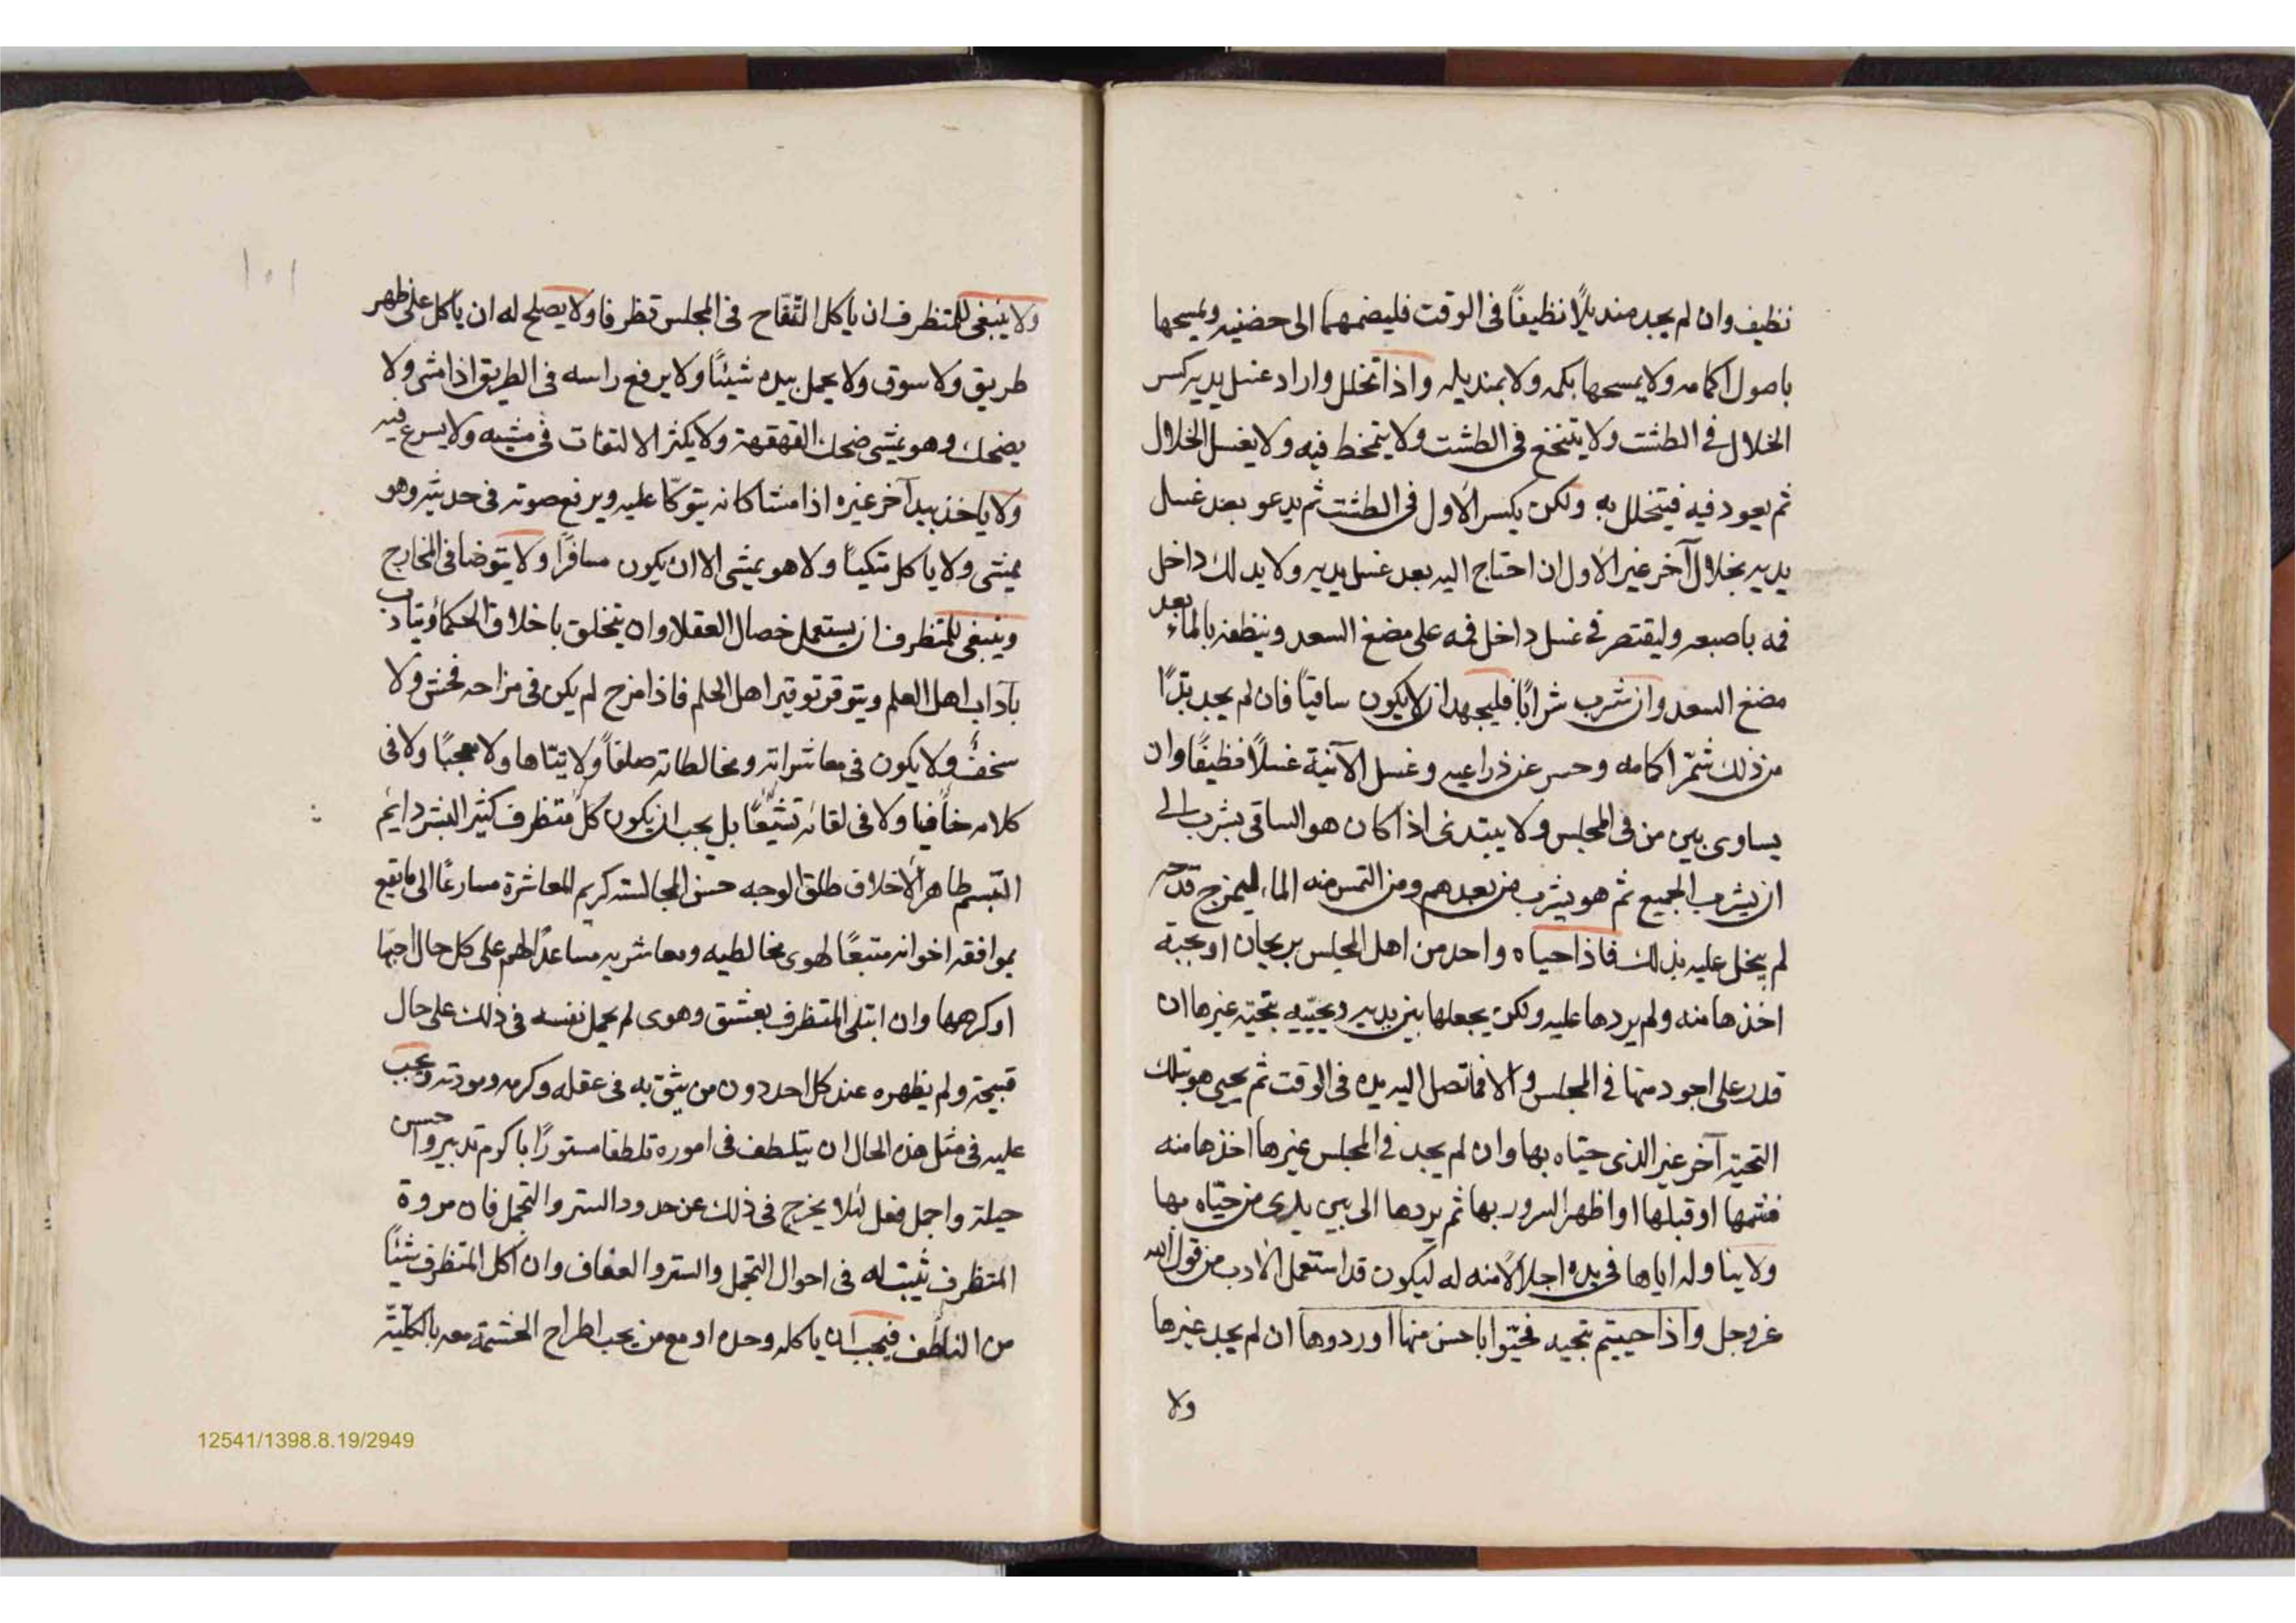 نظيف وان لم يجد منديلًا نظيفًا فى الوقت فليضمهما الى حضنيه ويمسحها
باصول اكمامه ولا يمسحها بكمه ولا بمنديله واذا تخلل واراد غسل يديه كسر
الخلال فى الطشت ولا يتنخع فى الطشت ولا يتمخط فيه ولا يغسل الخلال
ثم يعود فيه فيتخلل به ولكن يكسر الاول فى الطشت ثم يدعو بعد غسل
يديه بخلال آخر غير الاول ان احتاج اليه بعد غسل يديه ولا يدلك داخل
فمه باصبعه وليقتصر فى غسل داخل فمه على مضغ السعد وينظفه بالماء بعد
مضغ السعد وان شرب شرابًا فليجهد ان لا يكون ساقيًا فان لم يجد بدًا
من ذلك شمّر اكمامه وحسر عن ذراعيه وغسل الآنية غسلًا نظيفًا وان
يساوى بين من فى المجلس ولا يبتدئ اذا كان هو الساقى بشرب الى
ان يشرب الجميع ثم هو يشرب من بعدهم ومن التمس منه الماء ليمزج قدحه
لم يبخل عليه بذلك فاذا حياه واحد من اهل المجلس بريحان او بحبة
اخذها منه ولم يردها عليه ولكن يجعلها بين يديه ويحيّيه بتحية غيرها ان
قدر على اجود منها فى المجلس والا فما تصل اليه يده فى الوقت ثم يحيى هو بتلك
التحية آخر غير الذى حيّاه بها وان لم يجد فى المجلس غيرها اخذها منه
فشمها او قبلها او اظهر السرور بها ثم يردها الى بين يدى من حيّاه بها
ولا يناوله اياها فى يده اجلالًا منه له ليكون قد استعمل الادب من قول الله
عزوجل واذا حييتم بتحيه فحيّوا باحسن منها او ردوها ان لم يجد غيرها
ولا
١٠١
ولا ينبغى للمتظرف ان ياكل التّفّاح فى المجلس تظرفا ولا يصلح له ان ياكل على ظهر
طريق ولا سوق ولا يحمل بيده شيئًا ولا يرفع راسه فى الطريق اذا مشى ولا
يضحك وهو يمشى ضحك القهقهة ولا يكثر الالتفات فى مشيه ولا يسرع فيه
ولا ياخذ بيد آخر غيره اذا مشا كانه يتوكّا عليه ويرفع صوته فى حديثه وهو
يمشى ولا ياكل متكيًا ولا هو يمشى الا ان يكون مسافرًا ولا يتوضا فى المخارج
وينبغى للمتظرف ان يستعمل خصال العقلا وان يتخلق باخلاق الحكماء ويتادب
بآداب اهل العلم ويتوقر توقير اهل الحلم فاذا مزح لم يكن فى مزاحه فحش ولا
سخف ولا يكون فى معاشراته ومخالطاته صلفًا ولا تيّاها ولا معجبًا ولا فى
كلامه خافيا ولا فى لقائه تشيّعًا بل يجب ان يكون كل متظرف كثير البشر دايم
التبسم طاهر الاخلاق طلق الوجه حسن المجالسة كريم المعاشرة مسارعًا الى ما يقع
بموافقه اخوانه متبعًا لهوى مخالطيه ومعاشريه مساعدًا لهم على كل حال احبّها
او كرهها وان ابتلى المتظرف بعشق وهوى لم يحمل نفسه فى ذلك على حال
قبيحة ولم يظهره عند كل احد دون من يثق به فى عقله وكرمه ومودته ويجب
عليه فى مثل هذه الحال ان يتلطف فى اموره تلطفا مستورًا باكرم تدبير واحسن
حيلة واجمل فعل لئلا يخرج فى ذلك عن حدود الستر والتجمل فان مروة
المتظرف تثبت له فى احوال التجمل والستر والعفاف وان اكل المتظرف شيئًا
من الناطف فيجب ان ياكله وحده او مع من يجب اطراح الحشمة معه بالكليّة
12541/1398.8.19/2949